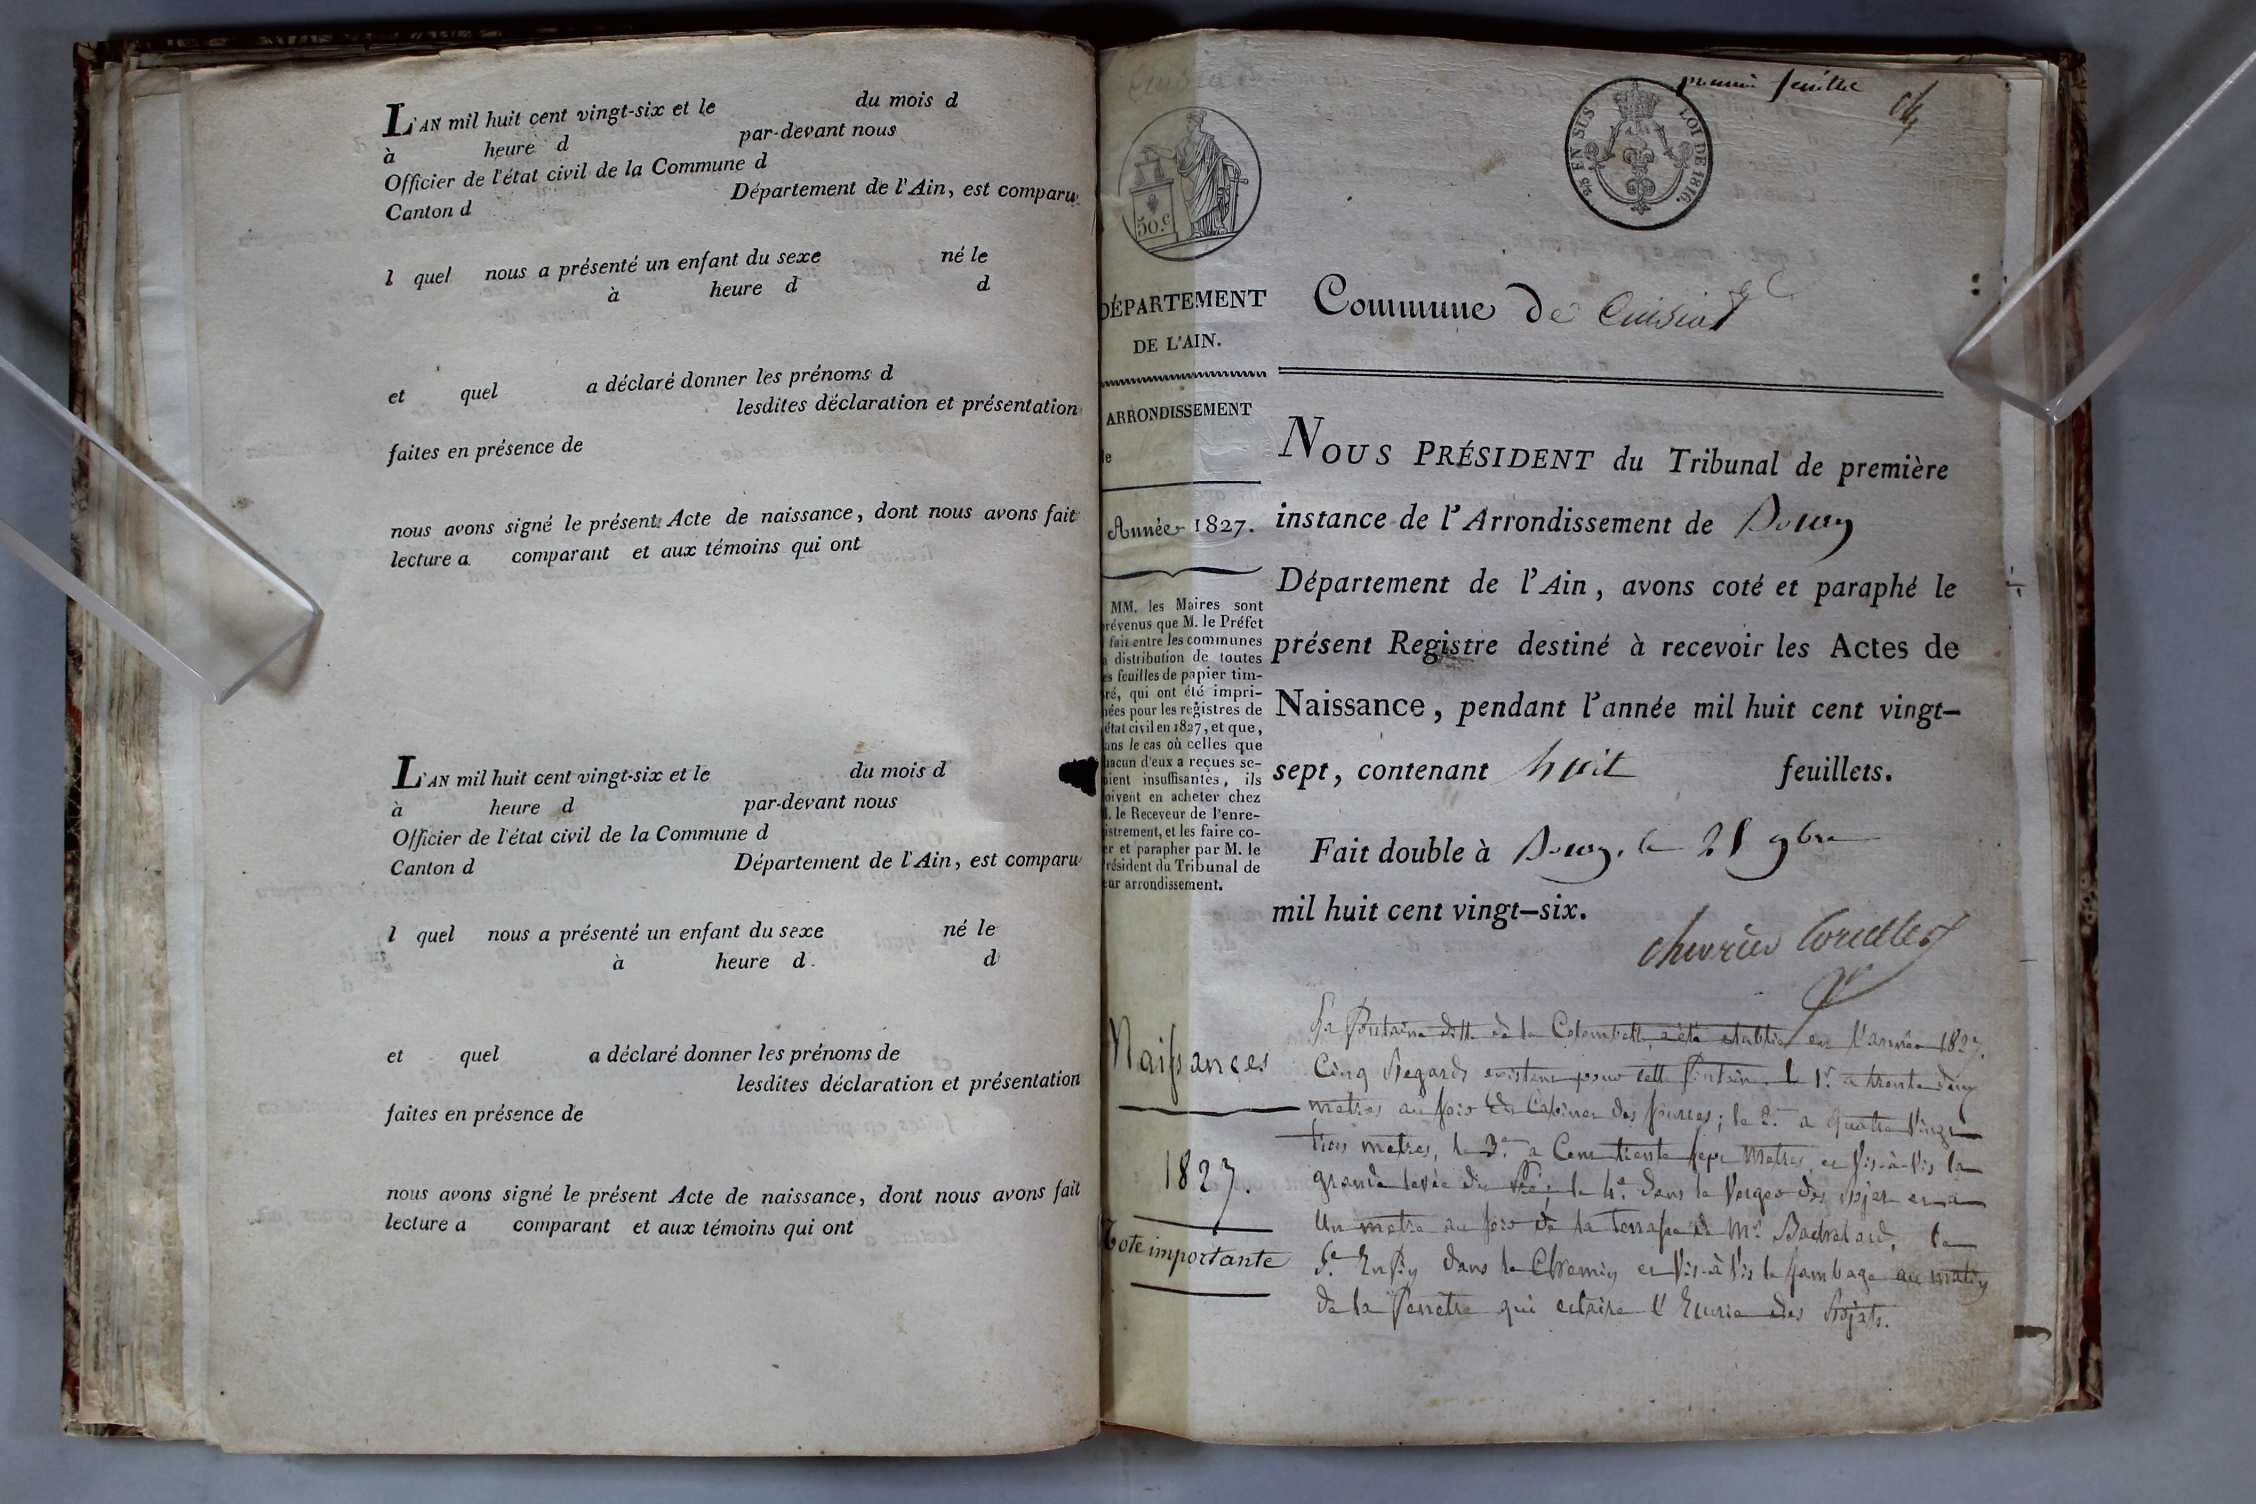 L'AN mil huit cent vingt-six et le du mois d
à heure d par-devant nous
Officier de l'état civil de la Commune d
Canton d Département de l'Ain, est comparu
l quel nous a présenté un enfant du sexe né le
à heure d d
et quel a déclaré donner les prénoms d
lesdites déclaration et présentation
faites en présence de
nous avons signé le présent Acte de naissance, dont nous avons fait
lecture a comparant et aux témoins qui ont
L'AN mil huit cent vingt-six et le du mois d
à heure d par-devant nous
Officier de l'état civil de la Commune d
Canton d Département de l'Ain, est comparu
l quel nous a présenté un enfant du sexe né le
à heure d d
et quel a déclaré donner les prénoms de
lesdites déclaration et présentation
faites en présence de
nous avons signé le présent Acte de naissance, dont nous avons fait
lecture a comparant et aux témoins qui ont
50.c
DÉPARTEMENT
DE L'AIN.
ARRONDISSEMENT
Année 1827.
MM. les Maires sont
révenus que M. le Préfet
fait entre les communes
a distribution de toutes
es feuilles de papier tim-
ré, qui ont été impri-
ées pour les registres de
état civil en 1827, et que,
ans le cas où celles que
hacun d'eux a reçues se-
aient insuffisantes, ils
oivent en acheter chez
M. le Receveur de l'enre-
istrement, et les faire co-
er et parapher par M. le
résident du Tribunal de
eur arrondissement.
Naissances
1827.
Note importante
premier feuillet
EN SUS LOI DE 1816.
Commune de Cuisiat
NOUS PRÉSIDENT du Tribunal de première
instance de l'Arrondissement de Bourg
Département de l'Ain, avons coté et paraphé le
présent Registre destiné à recevoir les Actes de
Naissance, pendant l'année mil huit cent vingt-
sept, contenant huit feuillets.
Fait double à Bourg, le 28 9bre
mil huit cent vingt-six.
chevrier Corcelles
La fontaine ditte de la Colombette, a été etablie en l'année 1827.
Cinq Regards existent pour cette fontaine. Le 1r. a trente deux
metres au soir du Cabinet des sources; le 2e. a quatre Vingt
trois metres, le 3e. a Cent trente sept Metres, et Vis-à-Vis la
grande levée du le 4e. dans le Verger des Pojat et a
Un metre au soir de la terrasse de Mr. le
5e. Enfin dans le Chemin et Vis-à-Vis le jambage au matin
de la fenetre qui eclaire l'Ecurie des Pojats.